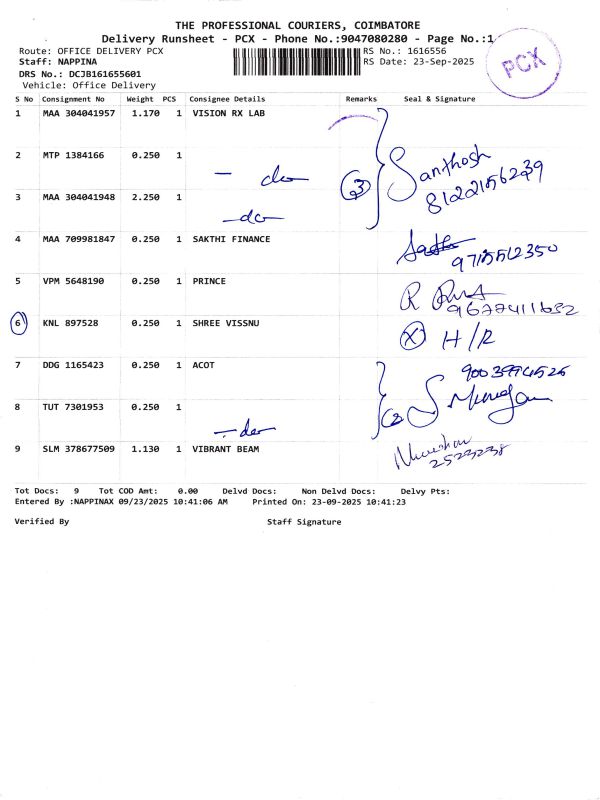 THE PROFESSIONAL COURIERS, COIMBATORE
Delivery Runsheet - PCX - Phone No.:9047080280 - Page No.:1
Route: OFFICE DELIVERY PCX RS No.: 1616556
Staff: NAPPINA RS Date: 23-Sep-2025
DRS No.: DCJB161655601
Vehicle: Office Delivery
PCX
S No Consignment No Weight PCS Consignee Details Remarks Seal & Signature
1 MAA 304041957 1.170 1 VISION RX LAB
2 MTP 1384166 0.250 1 - do (3) Santhosh
3 MAA 304041948 2.250 1 -do-
4 MAA 709981847 0.250 1 SAKTHI FINANCE
5 VPM 5648190 0.250 1 PRINCE R
9677411632
6 KNL 897528 0.250 1 SHREE VISSNU X H/R
7 DDG 1165423 0.250 1 ACOT
8 TUT 7301953 0.250 1 - do (2) S Murugan
9 SLM 378677509 1.130 1 VIBRANT BEAM
2523238
Tot Docs: 9 Tot COD Amt: 0.00 Delvd Docs: Non Delvd Docs: Delvy Pts:
Entered By :NAPPINAX 09/23/2025 10:41:06 AM Printed On: 23-09-2025 10:41:23
Verified By Staff Signature